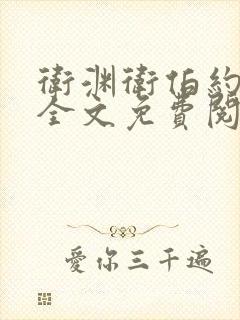 衛渊衛伯約
全文免費閱
愛你三千遍